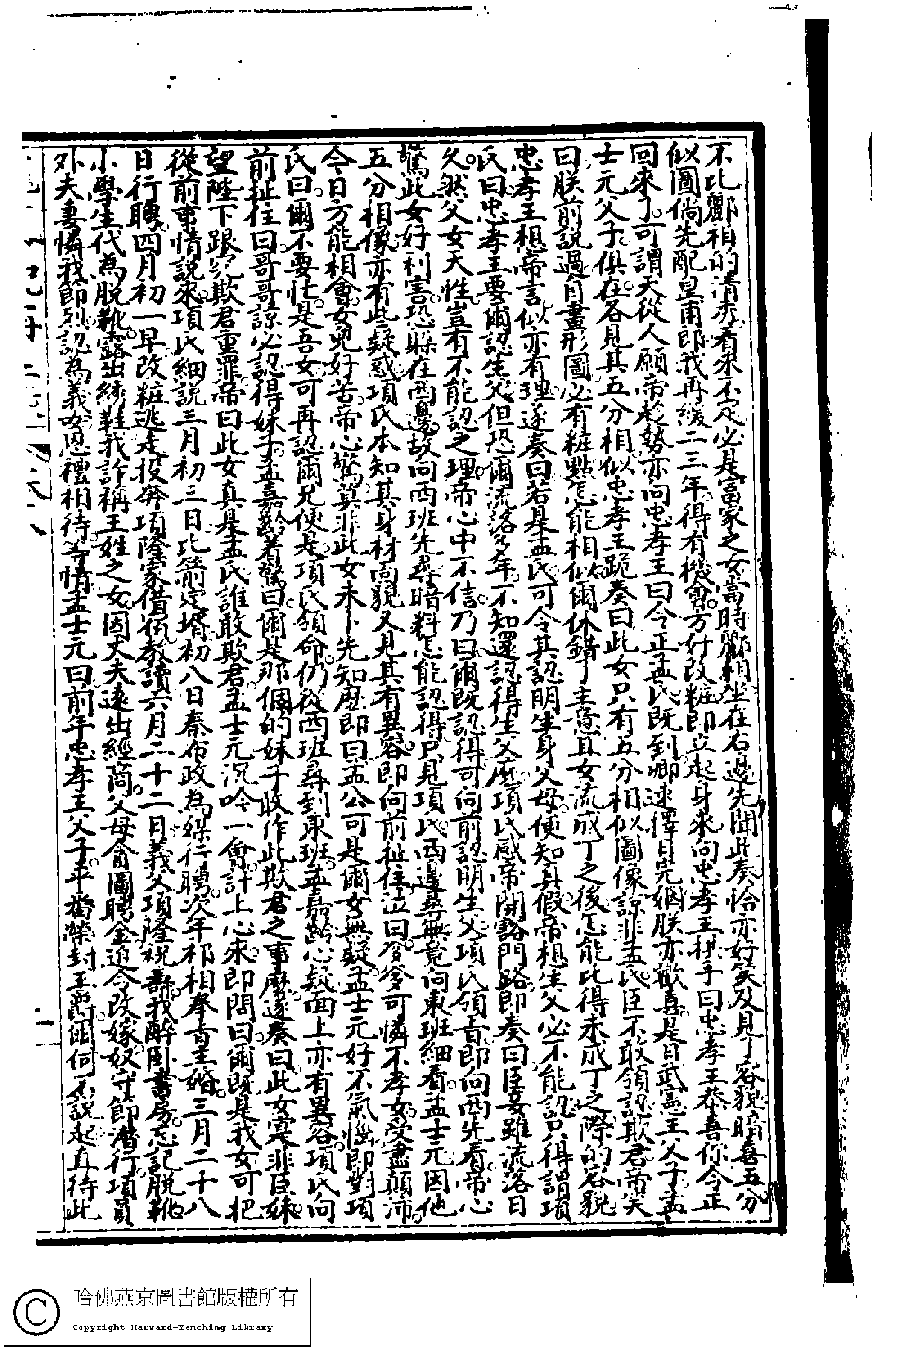 不比酈相的清秀看來不定必是富家之女當時酈相坐在右邊先聞此奏恰亦好笑及見了容貌暗喜五分
似圖倘先配皇甫即我再緩二三年得有機會方好改粧即立起身來向忠孝王拱手曰忠孝王恭喜你令正
回來了可謂天從人願帝趁勢亦向忠孝王曰令正孟氏既到卿速擇日完婣朕亦歡喜是日武憲王父子孟
士元父子俱在各見其五分相似忠孝王跪奏曰此女只有五分相似圖像諒非孟氏臣不敢領認欺君帝笑
曰朕前說過自畫形圖必有粧點怎能相似爾休錯了主意且女流成丁之後怎能比得未成丁之際的容貌
忠孝王想帝言似亦有理遂奏曰若是孟氏可令其認明生身父母便知真假帝想生父必不能認只得謂項
氏曰忠孝王要爾認生父但恐爾流落多年不知還認得生父麽項氏感帝開豁門路即奏曰臣妾雖流落日
久然父女天性豈有不能認之理帝心中不信乃曰爾既認得可向前認明生父項氏領旨即向西先看帝心
驚此女好利害恐躲在西邊故向西班先尋暗料怎能認得只見項氏西邊尋無竟向東班細看孟士元因他
五分相像亦有此疑惑項氏本知其身材面貌又見其有異容即向前扯住泣曰爹爹可憐不孝女受盡顛沛
今日方能相會女兒好苦帝心驚莫非此女未卜先知麽即曰孟公可是爾女無疑孟士元好不氣惱即對項
氏曰爾不要忙是吾女可再認爾兄便是項氏領命仍從西班尋到東班孟嘉齡心疑面上亦有異容項氏向
前扯住曰哥哥諒必認得妹子孟嘉齡著驚曰爾是那個的妹子敢作此欺君之事麽遂奏曰此女實非臣妹
望陛下跟究欺君重罪帝曰此女真是孟氏誰敢欺君孟士元沉吟一會計上心來即問曰爾既是我女可把
從前事情說來項氏細說三月初三日比箭定壻初八日秦布政為媒行聘次年祁相奉旨主婚三月二十八
日行聘四月初一早改粧逃走投奔項隆家借伊教讀六月二十二日義父項隆祝壽我醉困書房忘記脫靴
小學生代為脫靴露出綉鞋我詐稱王姓之女因丈夫遠出經商父母貪圖聘金迫令改嫁奴守節潛行項員
外夫妻憐我節烈認為義女恩禮相待等情孟士元曰前年忠孝王父子平番榮封王爵爾何不說起直待此
哈佛燕京圖書館版權所有
Copyright Harvard-Yenching Library